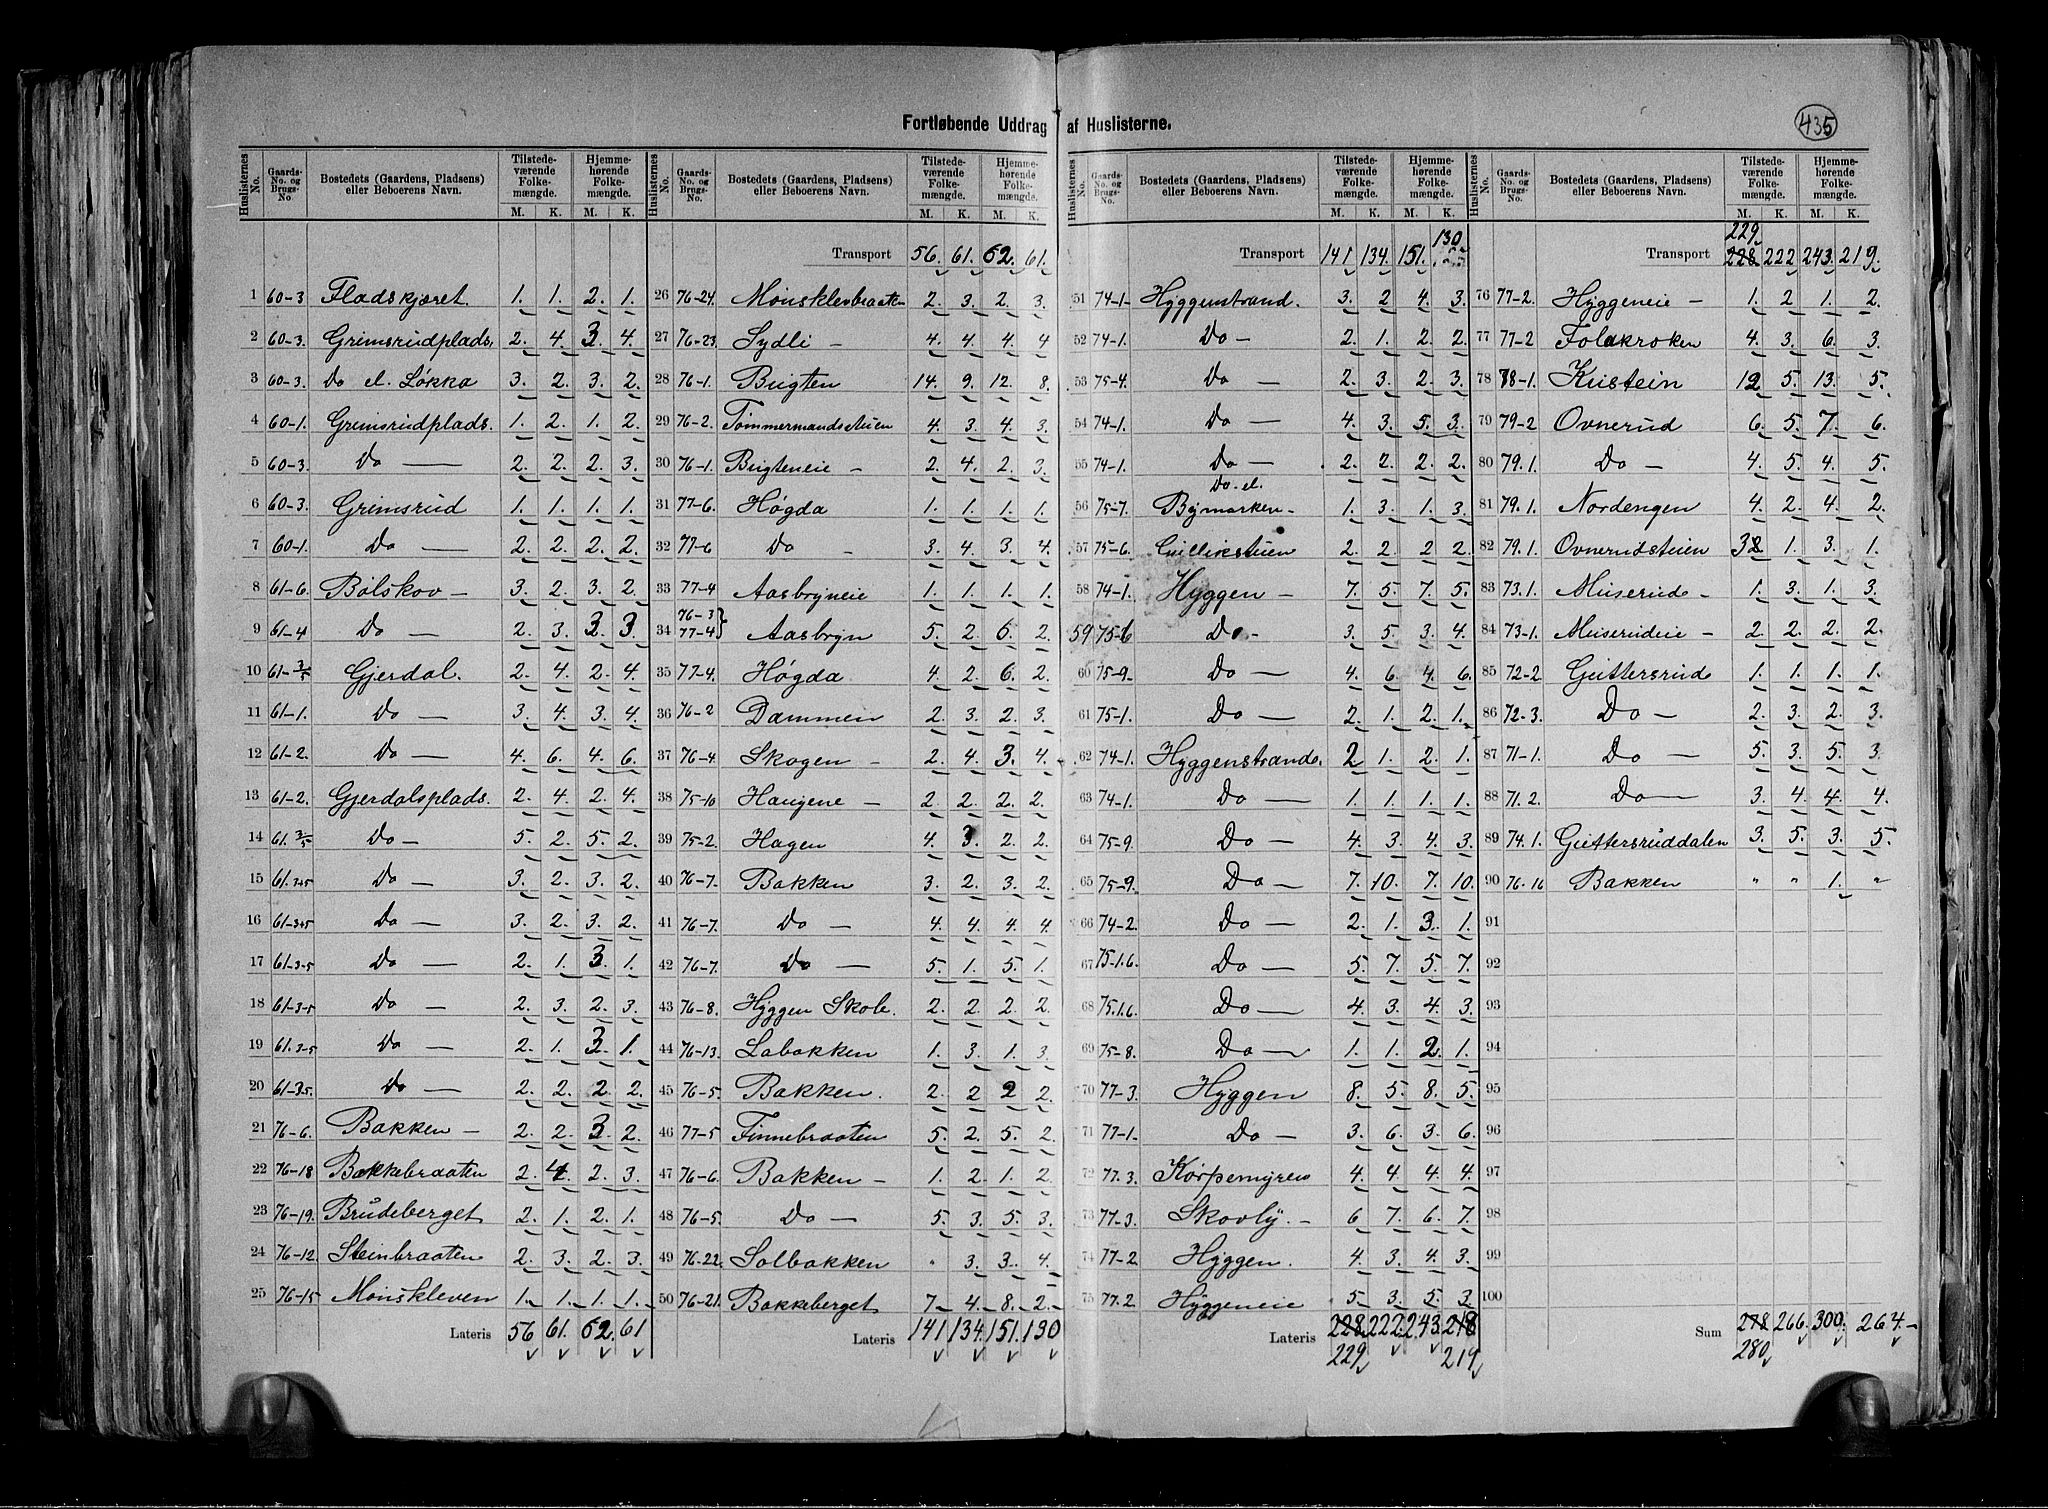 Fortløbende Uddrag af Huslisterne.
435
Huslisternes No. Gaards-No. og Brugs-No Bostedets (Gaardens, Pladsens) eller Beboerens Navn. Tilstedeværende Folkemængde. M. K. Hjemmehørende Folkemængde. M. K.
1 60-3 Fladskjæret. 1. 1. 2. 1.
2 60-3. Grimsrudplads. 2. 4. 3. 4.
3 60-3. Do el. Løkka 3. 2. 3. 2.
4 60-1. Grimsrudplads. 1. 2. 1. 2.
5 60-3. Do — 2. 2. 2. 3.
6 60-3. Grimsrud 1. 1. 1. 1.
7 60-1. Do — 2. 2. 2. 2.
8 61-6. Bølskov — 3. 2. 3. 2.
9 61-4 Do — 2. 3. 3. 3.
10 61-3/5 Gjerdal. 2. 4. 2. 4.
11 61-1. Do — 3. 4. 3. 4.
12 61-2. Do — 4. 6. 4. 6.
13 61-2. Gjerdalsplads. 2. 4. 2. 4.
14 61.3/5 Do — 5. 2. 5. 2.
15 61.3+5 Do — 3. 2. 3. 2.
16 61-3+5 Do — 3. 2. 3. 2.
17 61-3-5 Do — 2. 1. 3. 1.
18 61-3-5 Do — 2. 3. 2. 3.
19 61.3-5 Do — 2. 1. 3. 1.
20 61-3.5. Do — 2. 2. 2. 2.
21 76-6. Bakken — 2. 2. 3. 2.
22 76-18 Bakkebraaten 2. 4. 2. 3.
23 76-19. Brudeberget 2. 1. 2. 1.
24 76-12 Steinbraaten 2. 3. 2. 3.
25 76-15 Mønskleven 1. 1. 1. 1.
Lateris 56 61. 62. 61
Huslisternes No. Gaards-No. og Brugs-No Bostedets (Gaardens, Pladsens) eller Beboerens Navn. Tilstedeværende Folkemængde. M. K. Hjemmehørende Folkemængde. M. K.
Transport 56. 61. 62. 61.
26 76-24. Mønsklevbraaten 2. 3. 2. 3.
27 76-23 Sydli — 4. 4. 4. 4
28 76-1. Bugten 14. 9. 12. 8.
29 76-2. Tømmermandsstuen 4. 3. 4. 3.
30 76-1. Bugteneie — 2. 4. 2. 3.
31 77-6. Høgda 1. 1. 1. 1.
32 77-6 Do — 3. 4. 3. 4.
33 77-4 Aasbryneie 1. 1. 1. 1.
34 76-3 77-4 } Aasbryn 5. 2. 6. 2.
35 77-4. Høgda 4. 2. 6. 2.
36 76-2 Dammen 2. 3. 2. 3.
37 76-4 Skogen — 2. 4. 3. 4.
38 75-10 Haugene — 2. 2. 2. 2.
39 75-2. Hagen 4. 3. 2. 2.
40 76-7. Bakken 3. 2. 3. 2.
41 76-7. Do — 4. 4. 4. 4.
42 76-7. Do — 5. 1. 5. 1.
43 76-8. Hyggen Skole. 2. 2. 2. 2
44 76-13. Labakken 1. 3. 1. 3
45 76-5. Bakken. 2. 2 2 2
46 77-5 Finnebraaten 5. 2. 5. 2
47 76-6. Bakken — 1. 2. 1. 2
48 76-5. Do — 5. 3. 5. 3.
49 76-22. Solbakken " 3. 3. 4.
50 76-21. Bakkeberget 7 4. 8. 2.
Lateris 141. 134. 151. 130
Huslisternes No. Gaards-No. og Brugs-No. Bostedets (Gaardens, Pladsens) eller Beboerens Navn. Tilstedeværende Folkemængde. M. K. Hjemmehørende Folkemængde. M. K.
Transport 141 134. 151. 130
51 74-1. Hyggenstrand. 3. 2 4. 3.
52 74-1. Do — 2. 1. 2. 2.
53 75-4. Do — 2. 3. 2. 3.
54 74-1. Do — 4. 3. 5. 3.
55 74-1. Do — 2. 2. 2. 2.
56 75-7. Do. el. Bymarken — 1. 3. 1. 3.
57 75-6. Gullikstuen 2. 2. 2. 2
58 74-1. Hyggen — 7. 5. 7. 5.
59 75-6 Do — 3. 5. 3. 4.
60 75-9. Do — 4. 6. 4. 6.
61 75-1. Do — 2. 1. 2. 1.
62 74-1. Hyggenstrand. 2 1. 2. 1.
63 74-1. Do — 1. 1. 1. 1.
64 75-9. Do — 4. 3. 4. 3.
65 75-9. Do — 7. 10. 7. 10.
66 74-2. Do — 2. 1. 3. 1.
67 75-1.6. Do — 5. 7. 5. 7.
68 75.1.6. Do — 4. 3. 4. 3.
69 75-8. Do — 1. 1. 2. 1.
70 77-3. Hyggen 8. 5. 8. 5.
71 77-1. Do — 3. 6. 3. 6.
72 77.3. Korpemyren 4. 4. 4. 4.
73 77-3. Skovly. — 6 7. 6. 7.
74 77-2 Hyggen. 4. 3. 4. 3.
75 77.2 Hyggeneie 5. 3. 5. 3
Lateris 228 222. 243. 218
229 219
Huslisternes No. Gaards-No. og Brugs-No. Bostedets (Gaardens, Pladsens) eller Beboerens Navn. Tilstedeværende Folkemængde. M. K. Hjemmehørende Folkemængde. M. K.
229
Transport 228 222 243. 219.
76 77-2. Hyggeneie — 1. 2 1. 2.
77 77-2 Folakroken 4. 3. 6. 3.
78 78-1. Kustein 12 5. 13. 5.
79 79-2 Ovnerud 6. 5. 7. 6.
80 79.1. Do — 4. 5. 4. 5.
81 79.1. Nordengen 4. 2. 4. 2.
82 79.1. Ovnerudstuen 3 1. 3. 1.
83 73.1. Muserud — 1. 3. 1. 3
84 73-1. Muserudeie — 2. 2. 2. 2.
85 72-2. Guttersrud 1. 1. 1. 1.
86 72-3. Do — 2. 3. 2. 3.
87 71-1. Do — 5. 3. 5. 3
88 71.2. Do — 3. 4. 4. 4.
89 74.1. Guttersruddalen 3. 5. 3. 5.
90 76.16 Bakken " " 1. "
91
92
93
94
95
96
97
98
99
100
Sum 278 266. 300. 264.
280